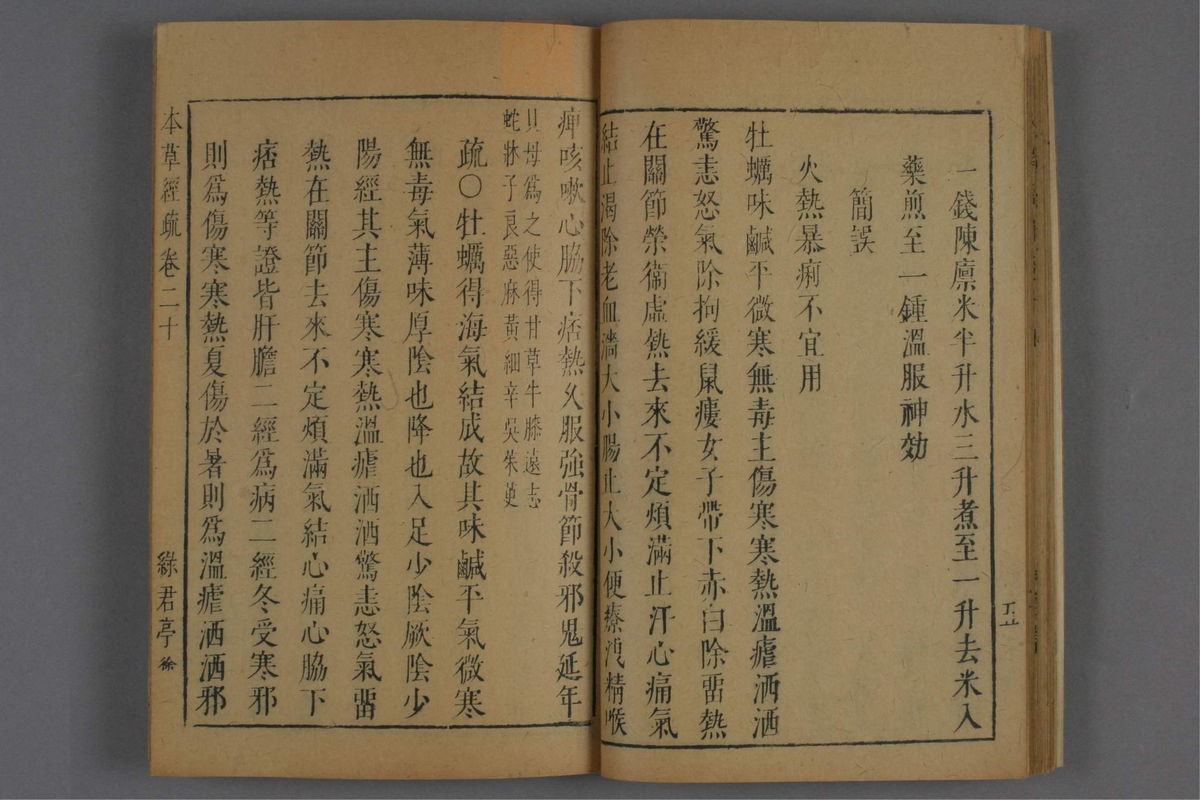 一錢陳廪米半升水三升煮至一升去米入
藥煎至一鍾溫服神効
簡誤
火熱暴痢不宜用
牡蠣味鹹平微寒無毒主傷寒寒熱溫瘧洒洒
驚恚怒氣除拘緩鼠瘻女子帶下赤白除畱熱
在關節榮衞虛熱去來不定煩滿止汗心痛氣
結止渴除老血濇大小腸止大小便療洩精喉
痺咳嗽心脇下痞熱久服強骨節殺邪鬼延年
貝母爲之使得甘草牛膝遠志
蛇牀子良惡麻黃細辛吳朱萸
疏○牡蠣得海氣結成故其味鹹平氣微寒
無毒氣薄味厚陰也降也入足少陰厥陰少
陽經其主傷寒寒熱溫瘧洒洒驚恚怒氣畱
熱在關節去來不定煩滿氣結心痛心脇下
痞熱等證皆肝膽二經爲病二經冬受寒邪
則爲傷寒寒熱夏傷於暑則爲溫瘧洒洒邪
本草經疏卷二十
綠君亭 徐